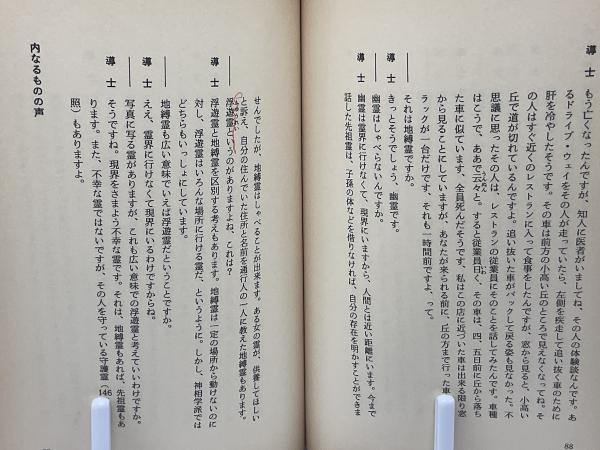 導士　もう亡くなったんですが、知人に医者がいましてね、その人の体験談なんです。あ
るドライブ・ウェイをその人が走っていたら、左側を疾走して追い抜く車のために
肝を冷やしたそうです。その車は前方の小高い丘のところで見えなくなってね。そ
の人はすぐ近くのレストランに入って食事をしたんですが、窓から見ると、小高い
丘で道が切れているんですよ。追い抜いた車がバックして戻る姿も見なかった。不
思議に思ったその人は、レストランの従業員にそのことを話してみたんです。車種
はこうで、ああで云々と。すると従業員曰く、その車は、四、五日前に丘から落ち
た車に似ています、全員死んだそうです。私はこの店に近づいた車は出来る限り窓
から見ることにしていますが、あなたが来られる前に、丘の方まで行った車
ラックが一台だけです、それも一時間前ですよ、って。
――　それは地縛霊ですか。
導士　きっとそうでしょう、幽霊です。
――　幽霊はしゃべらないんですか。
導士　幽霊は霊界に行けなくて、現界にいますから、人間とは近い距離にいます。今まで
話した先祖霊は、子孫の体などを借りなければ、自分の存在を明かすことができま
88
せんでしたが、地縛霊はしゃべることが出来ます。ある女の霊が、供養してほしい
と訴え、自分の住んでいた住所と名前を通行人の一人に教えた地縛霊もあります。
――　浮遊霊というのがありますよね、これは？
導士　浮遊霊と地縛霊を区別する考えもあります。地縛霊は一定の場所から動けないのに
対し、浮遊霊はいろんな場所に行ける霊だ、というように。しかし、神相学派では
どちらもいっしょにしています。
――　地縛霊も広い意味でいえば浮遊霊だということですか。
導士　ええ、霊界に行けなくて現界にいるわけですからね。
――　写真に写る霊がありますが、これも広い意味での浮遊霊と考えていいわけですか。
導士　そうですね。現界をさまよう不幸な霊です。それは、地縛霊もあれば、先祖霊もあ
ります。また、不幸な霊ではないですが、その人を守っている守護霊（146
照）もありますよ。
内なるものの声